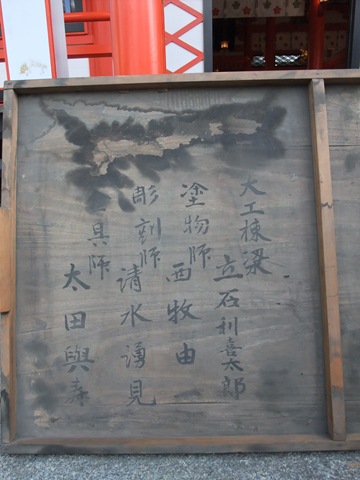 大工棟梁
立石利喜太郎
塗物師
西牧由一
彫刻師
清水湧見
金具師
太田與寿